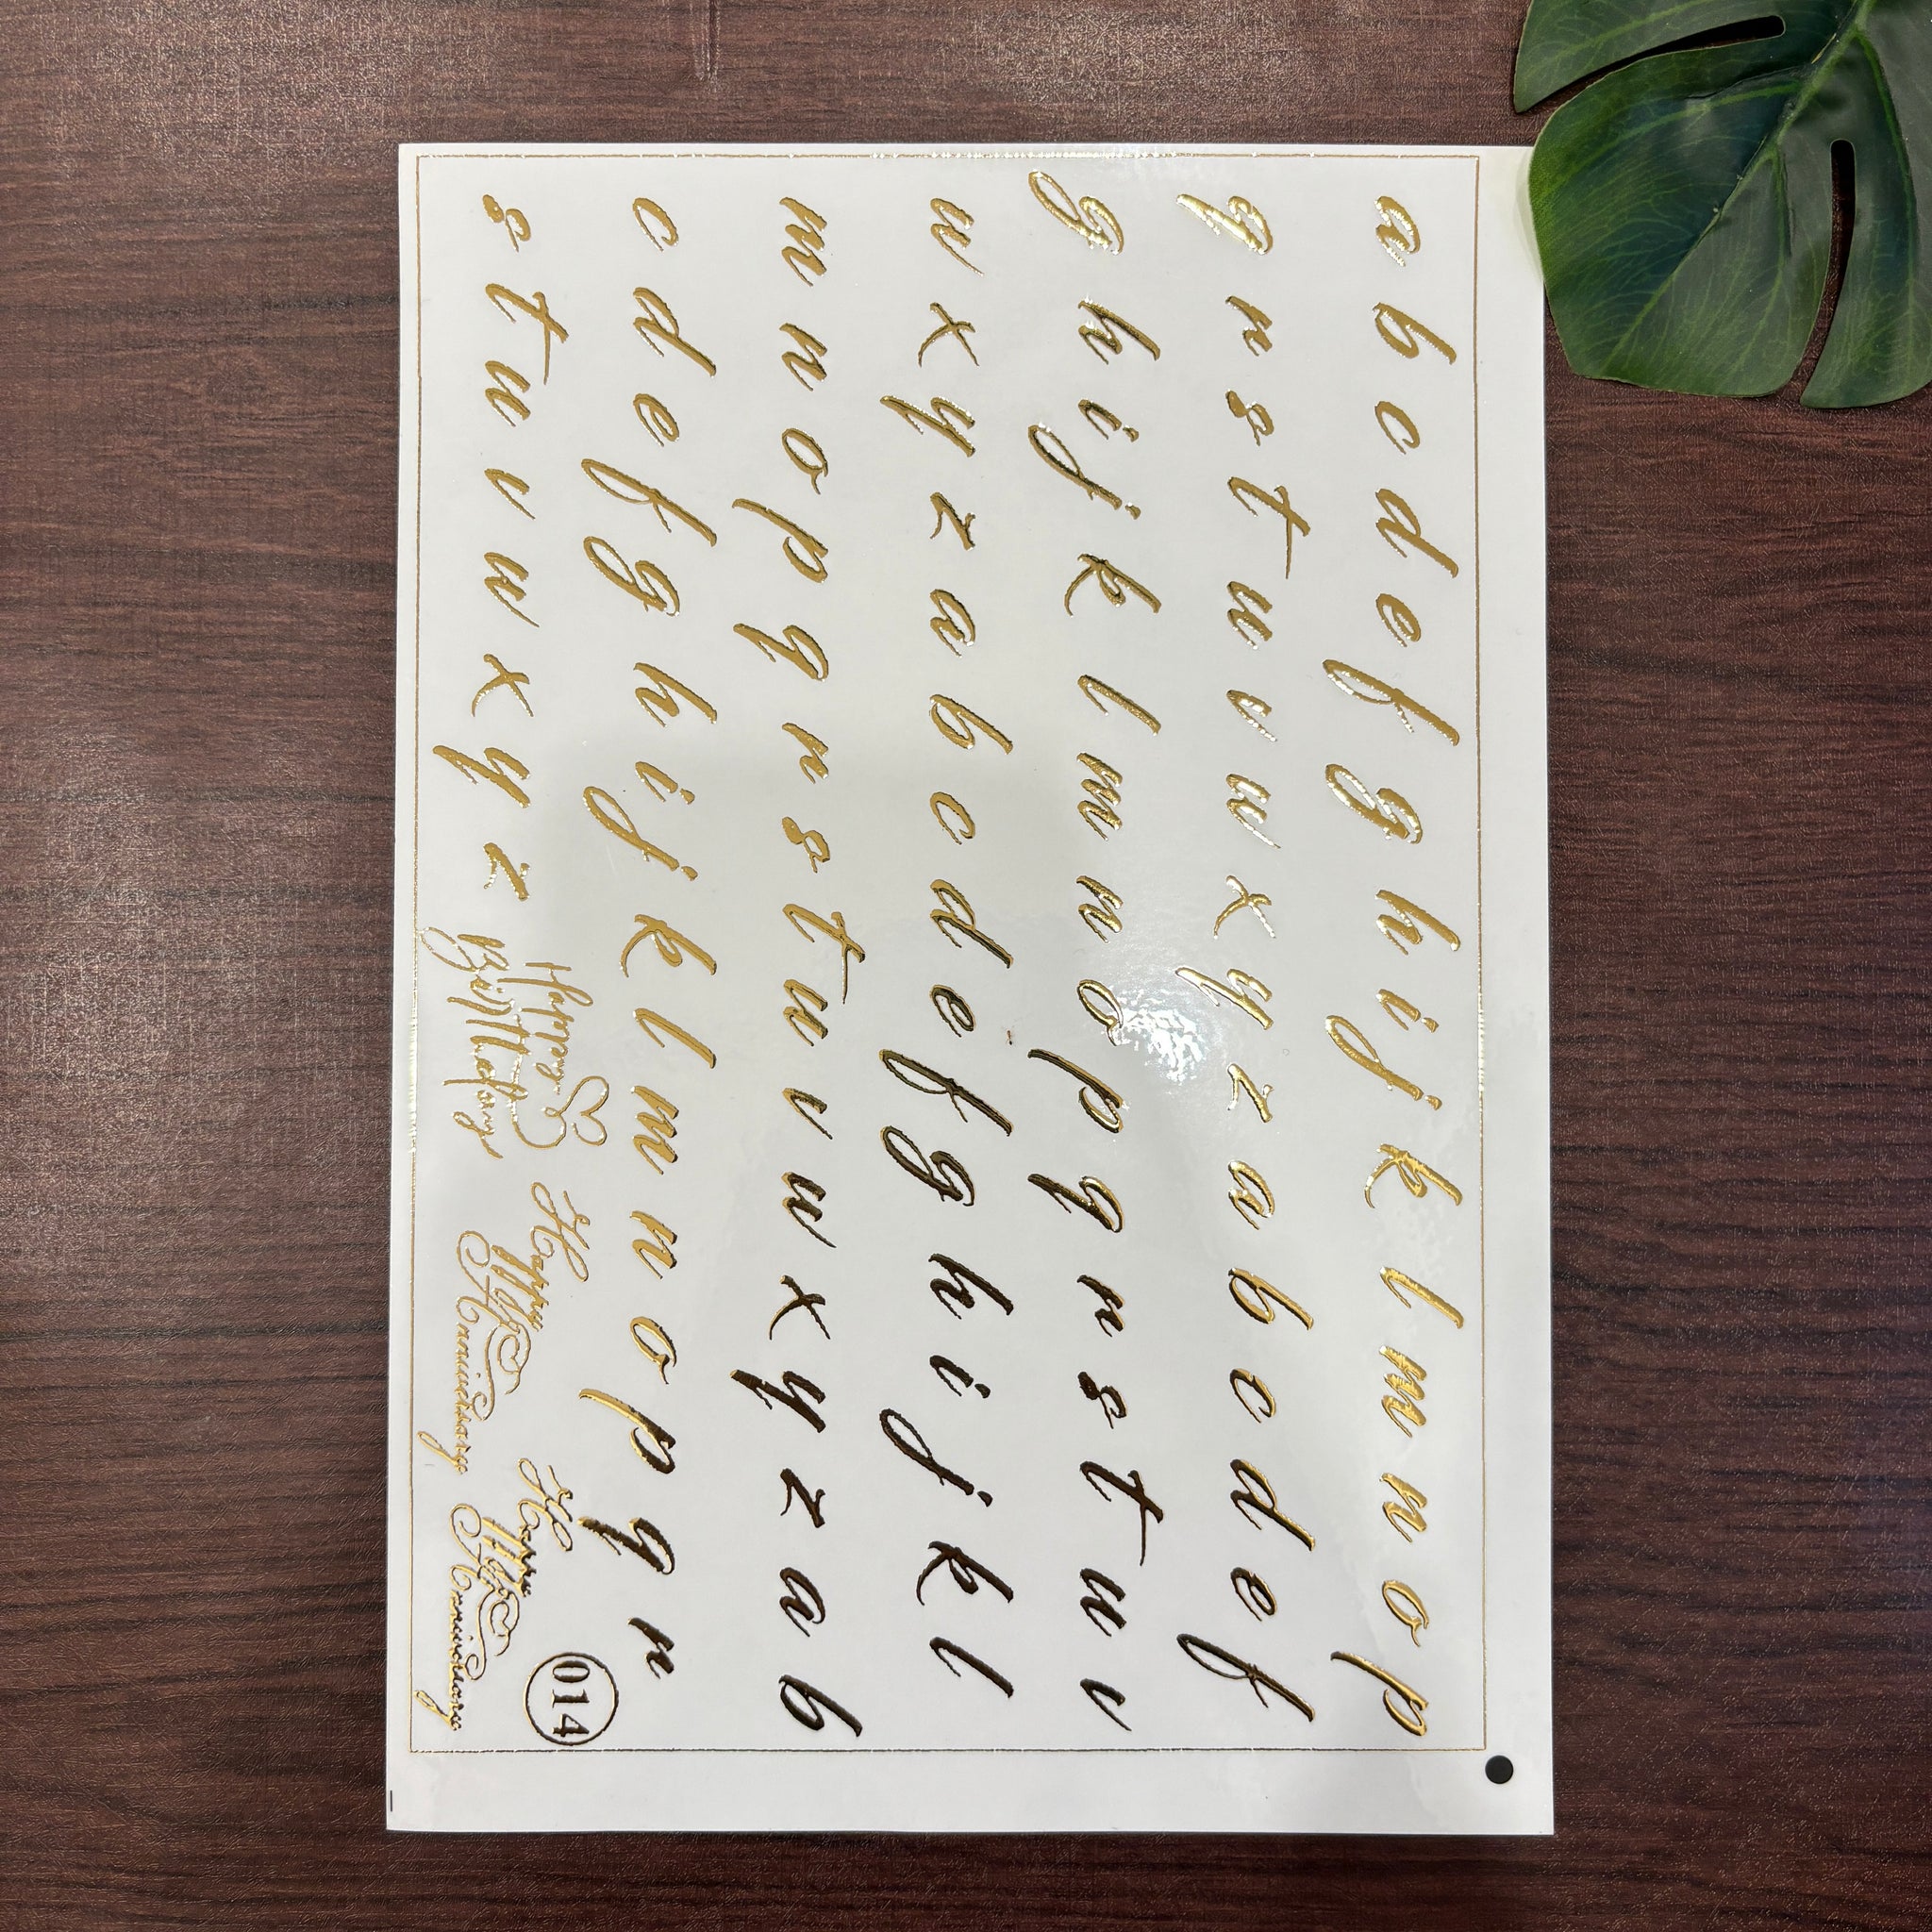 a b c d e f g h i j k l m n o p
q r s t u v w x y z a b c d e f
g h i j k l m n o p q r s t u v
w x y z a b c d e f g h i j k l
m n o p q r s t u v w x y z a b
c d e f g h i j k l m n o p q r
s t u v w x y z
Happy
Birthday
Happy
Anniversary
Happy
Anniversary
014